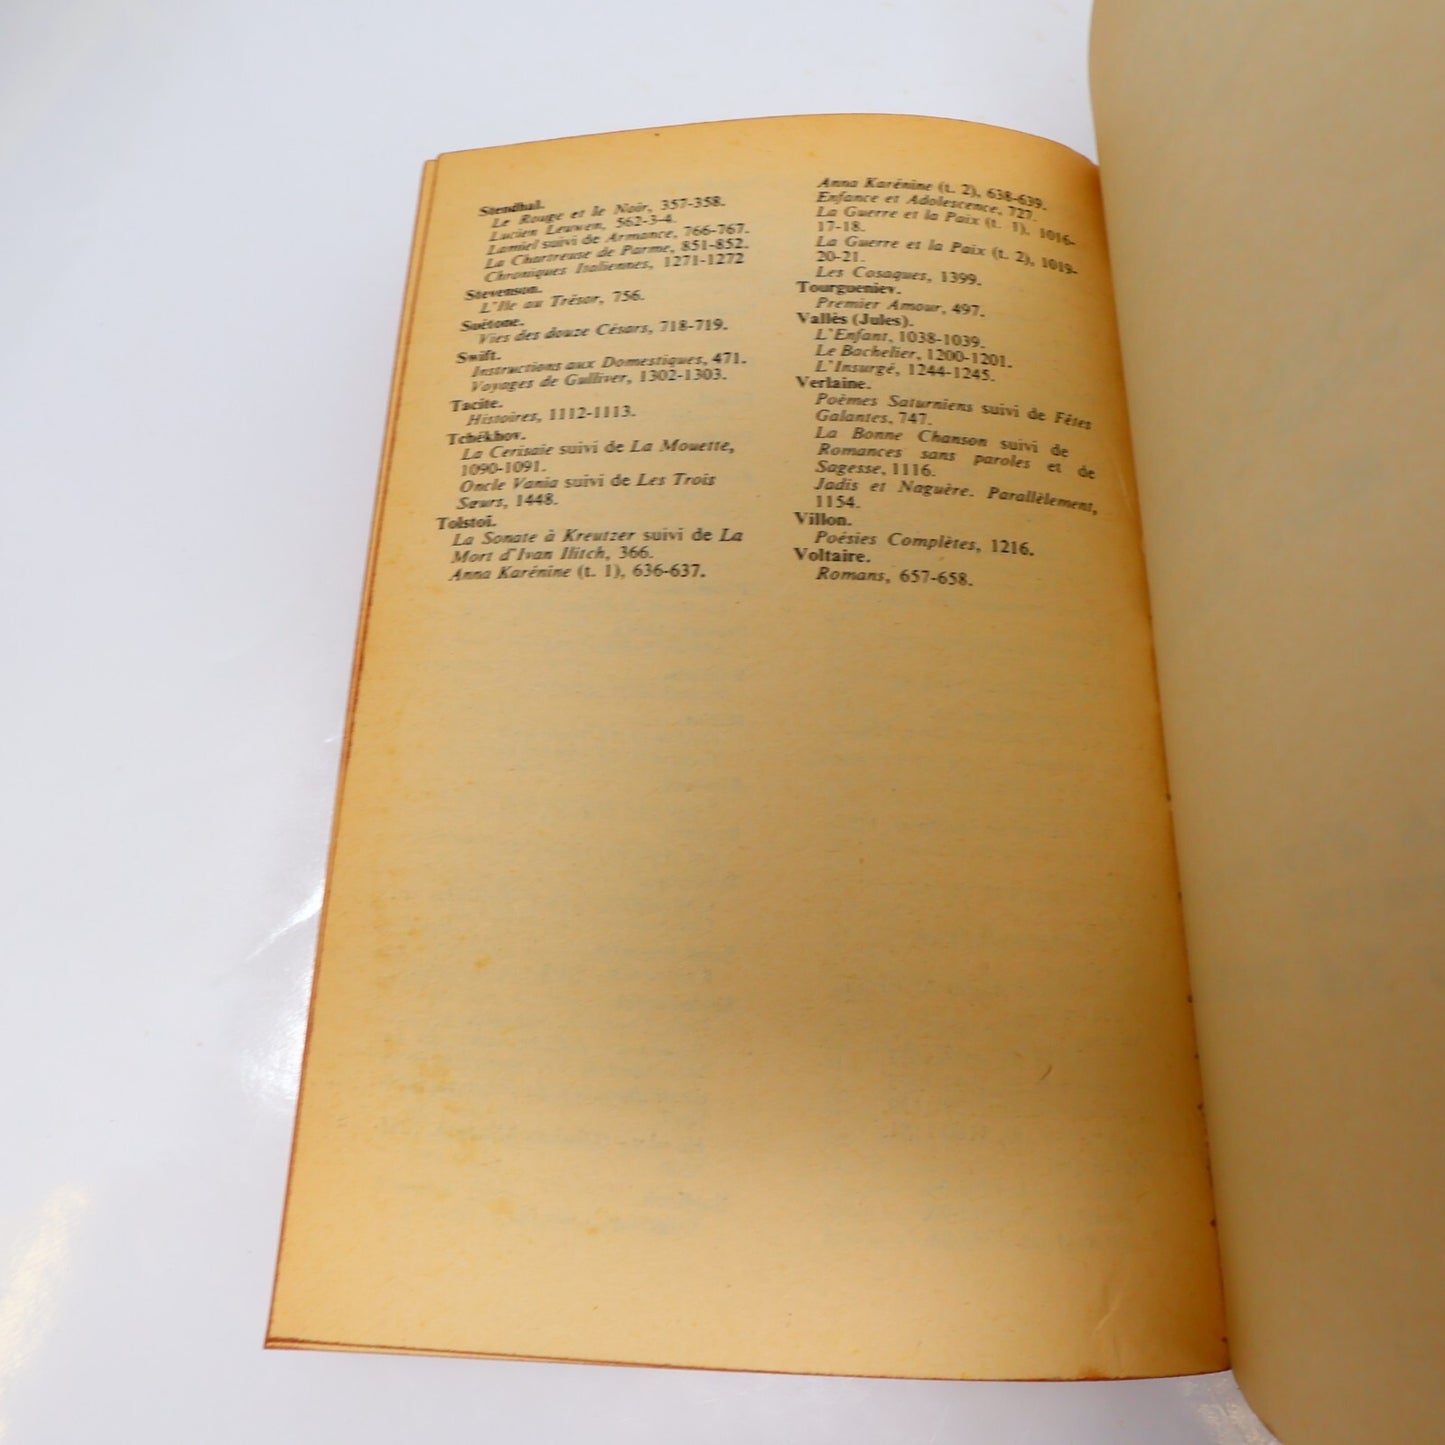 Stendhal.
Le Rouge et le Noir, 357-358.
Lucien Leuwen, 562-3-4.
Lamiel suivi de Armance, 766-767.
La Chartreuse de Parme, 851-852.
Chroniques Italiennes, 1271-1272
Stevenson.
L'Ile au Trésor, 756.
Suétone.
Vies des douze Césars, 718-719.
Swift.
Instructions aux Domestiques, 471.
Voyages de Gulliver, 1302-1303.
Tacite.
Histoires, 1112-1113.
Tchékhov.
La Cerisaie suivi de La Mouette,
1090-1091.
Oncle Vania suivi de Les Trois
Sœurs, 1448.
Tolstoï.
La Sonate à Kreutzer suivi de La
Mort d'Ivan Ilitch, 366.
Anna Karénine (t. 1), 636-637.
Anna Karénine (t. 2), 638-639.
Enfance et Adolescence, 727.
La Guerre et la Paix (t. 1), 1016-
17-18.
La Guerre et la Paix (t. 2), 1019-
20-21.
Les Cosaques, 1399.
Tourgueniev.
Premier Amour, 497.
Vallès (Jules).
L'Enfant, 1038-1039.
Le Bachelier, 1200-1201.
L'Insurgé, 1244-1245.
Verlaine.
Poèmes Saturniens suivi de Fêtes
Galantes, 747.
La Bonne Chanson suivi de
Romances sans paroles et de
Sagesse, 1116.
Jadis et Naguère. Parallèlement,
1154.
Villon.
Poésies Complètes, 1216.
Voltaire.
Romans, 657-658.